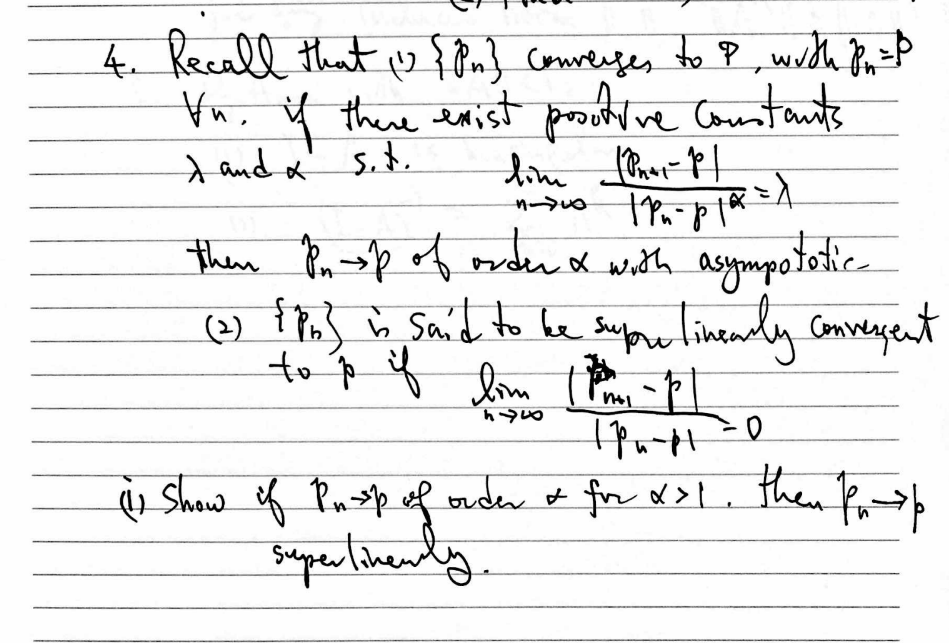 4. Recall that (1) {p_n} converges to P, with p_n = p
∀n. if there exist positive constants
λ and α s.t. lim_{n→∞} |p_{n+1} - p| / |p_n - p|^α = λ
then p_n → p of order α with asympototic
(2) {p_n} is said to be superlinearly convergent
to p if lim_{n→∞} |p_{n+1} - p| / |p_n - p| = 0
(i) Show if p_n → p of order α for α > 1. then p_n → p
superlinearly.